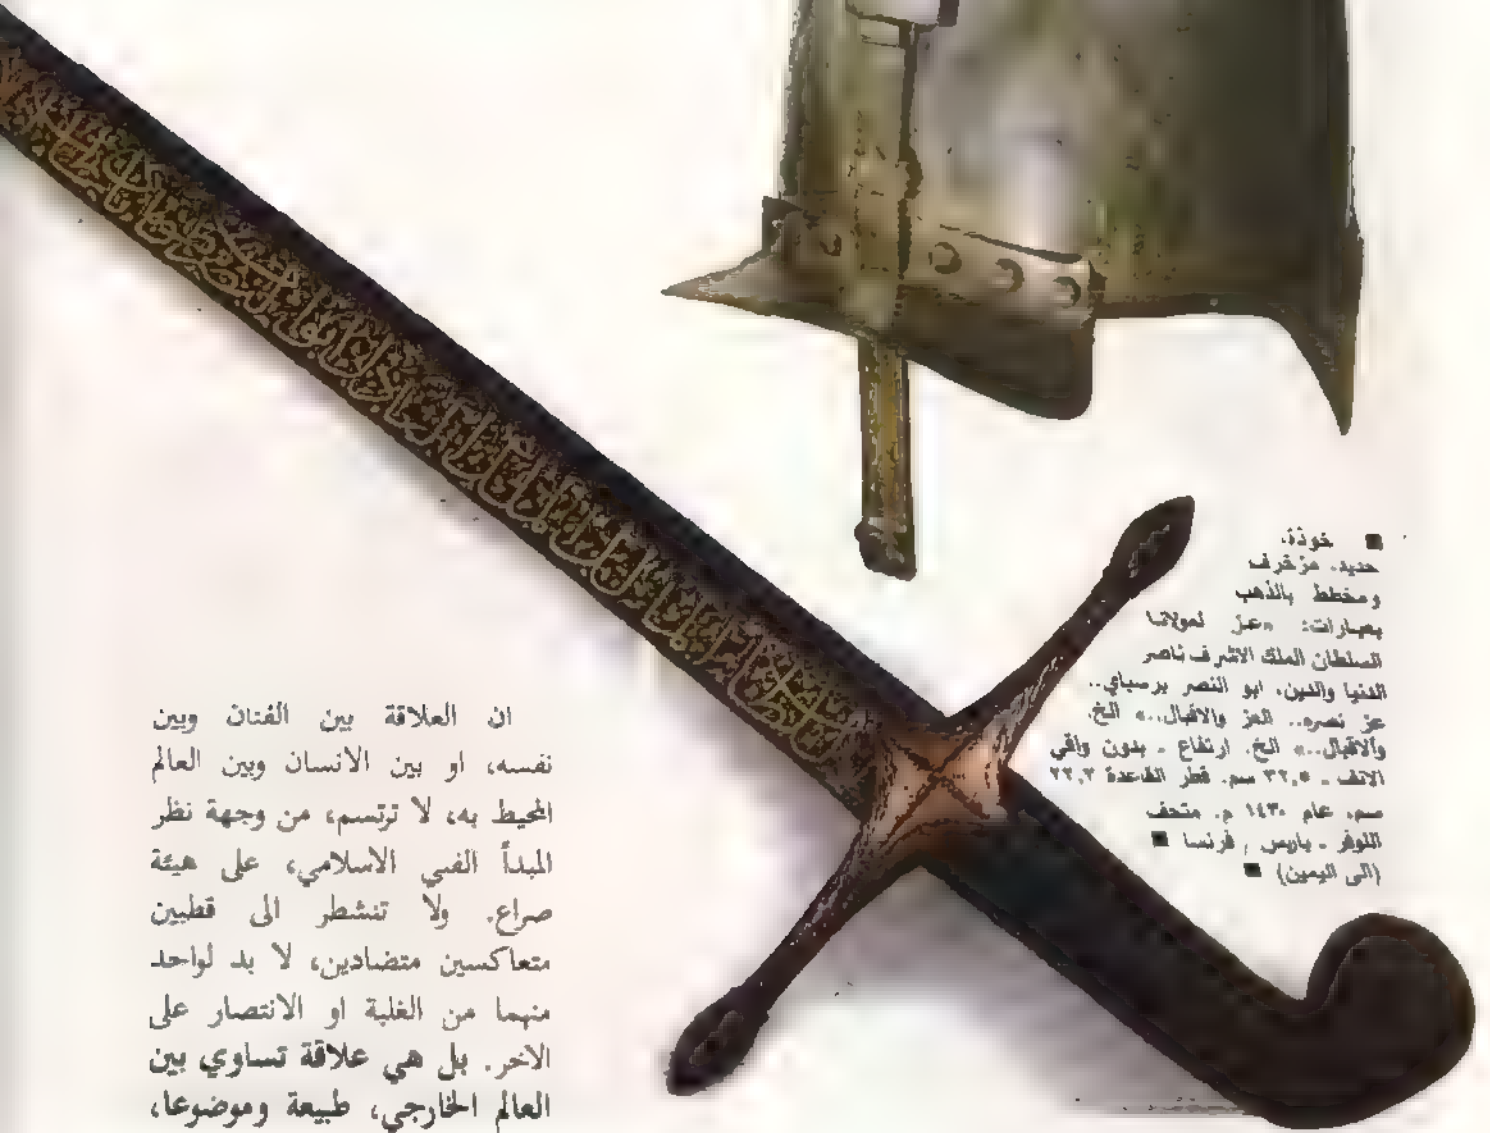 ■ خوذة،
حديد. مزخرف
ومخطط بالذهب
بعبارات: «عز لمولانا
السلطان الملك الاشرف ناصر
الدنيا والدين، ابو النصر برسباي..
عز نصره.. العز والاقبال..» الخ.
والاقبال..» الخ. ارتفاع ـ بدون واقي
الانف ـ ٣٢,٥ سم. قطر القاعدة ٢٢,٢
سم. عام ١٤٣٠ م. متحف
اللوفر ـ باريس , فرنسا ■
(الى اليمين) ■
ان العلاقة بين الفنان وبين
نفسه، او بين الانسان وبين العالم
المحيط به، لا ترتسم، من وجهة نظر
المبدأ الفني الاسلامي، على هيئة
صراع. ولا تنشطر الى قطبين
متعاكسين متضادين، لا بد لواحد
منهما من الغلبة او الانتصار على
الاخر. بل هي علاقة تساوي بين
العالم الخارجي، طبيعة وموضوعا،